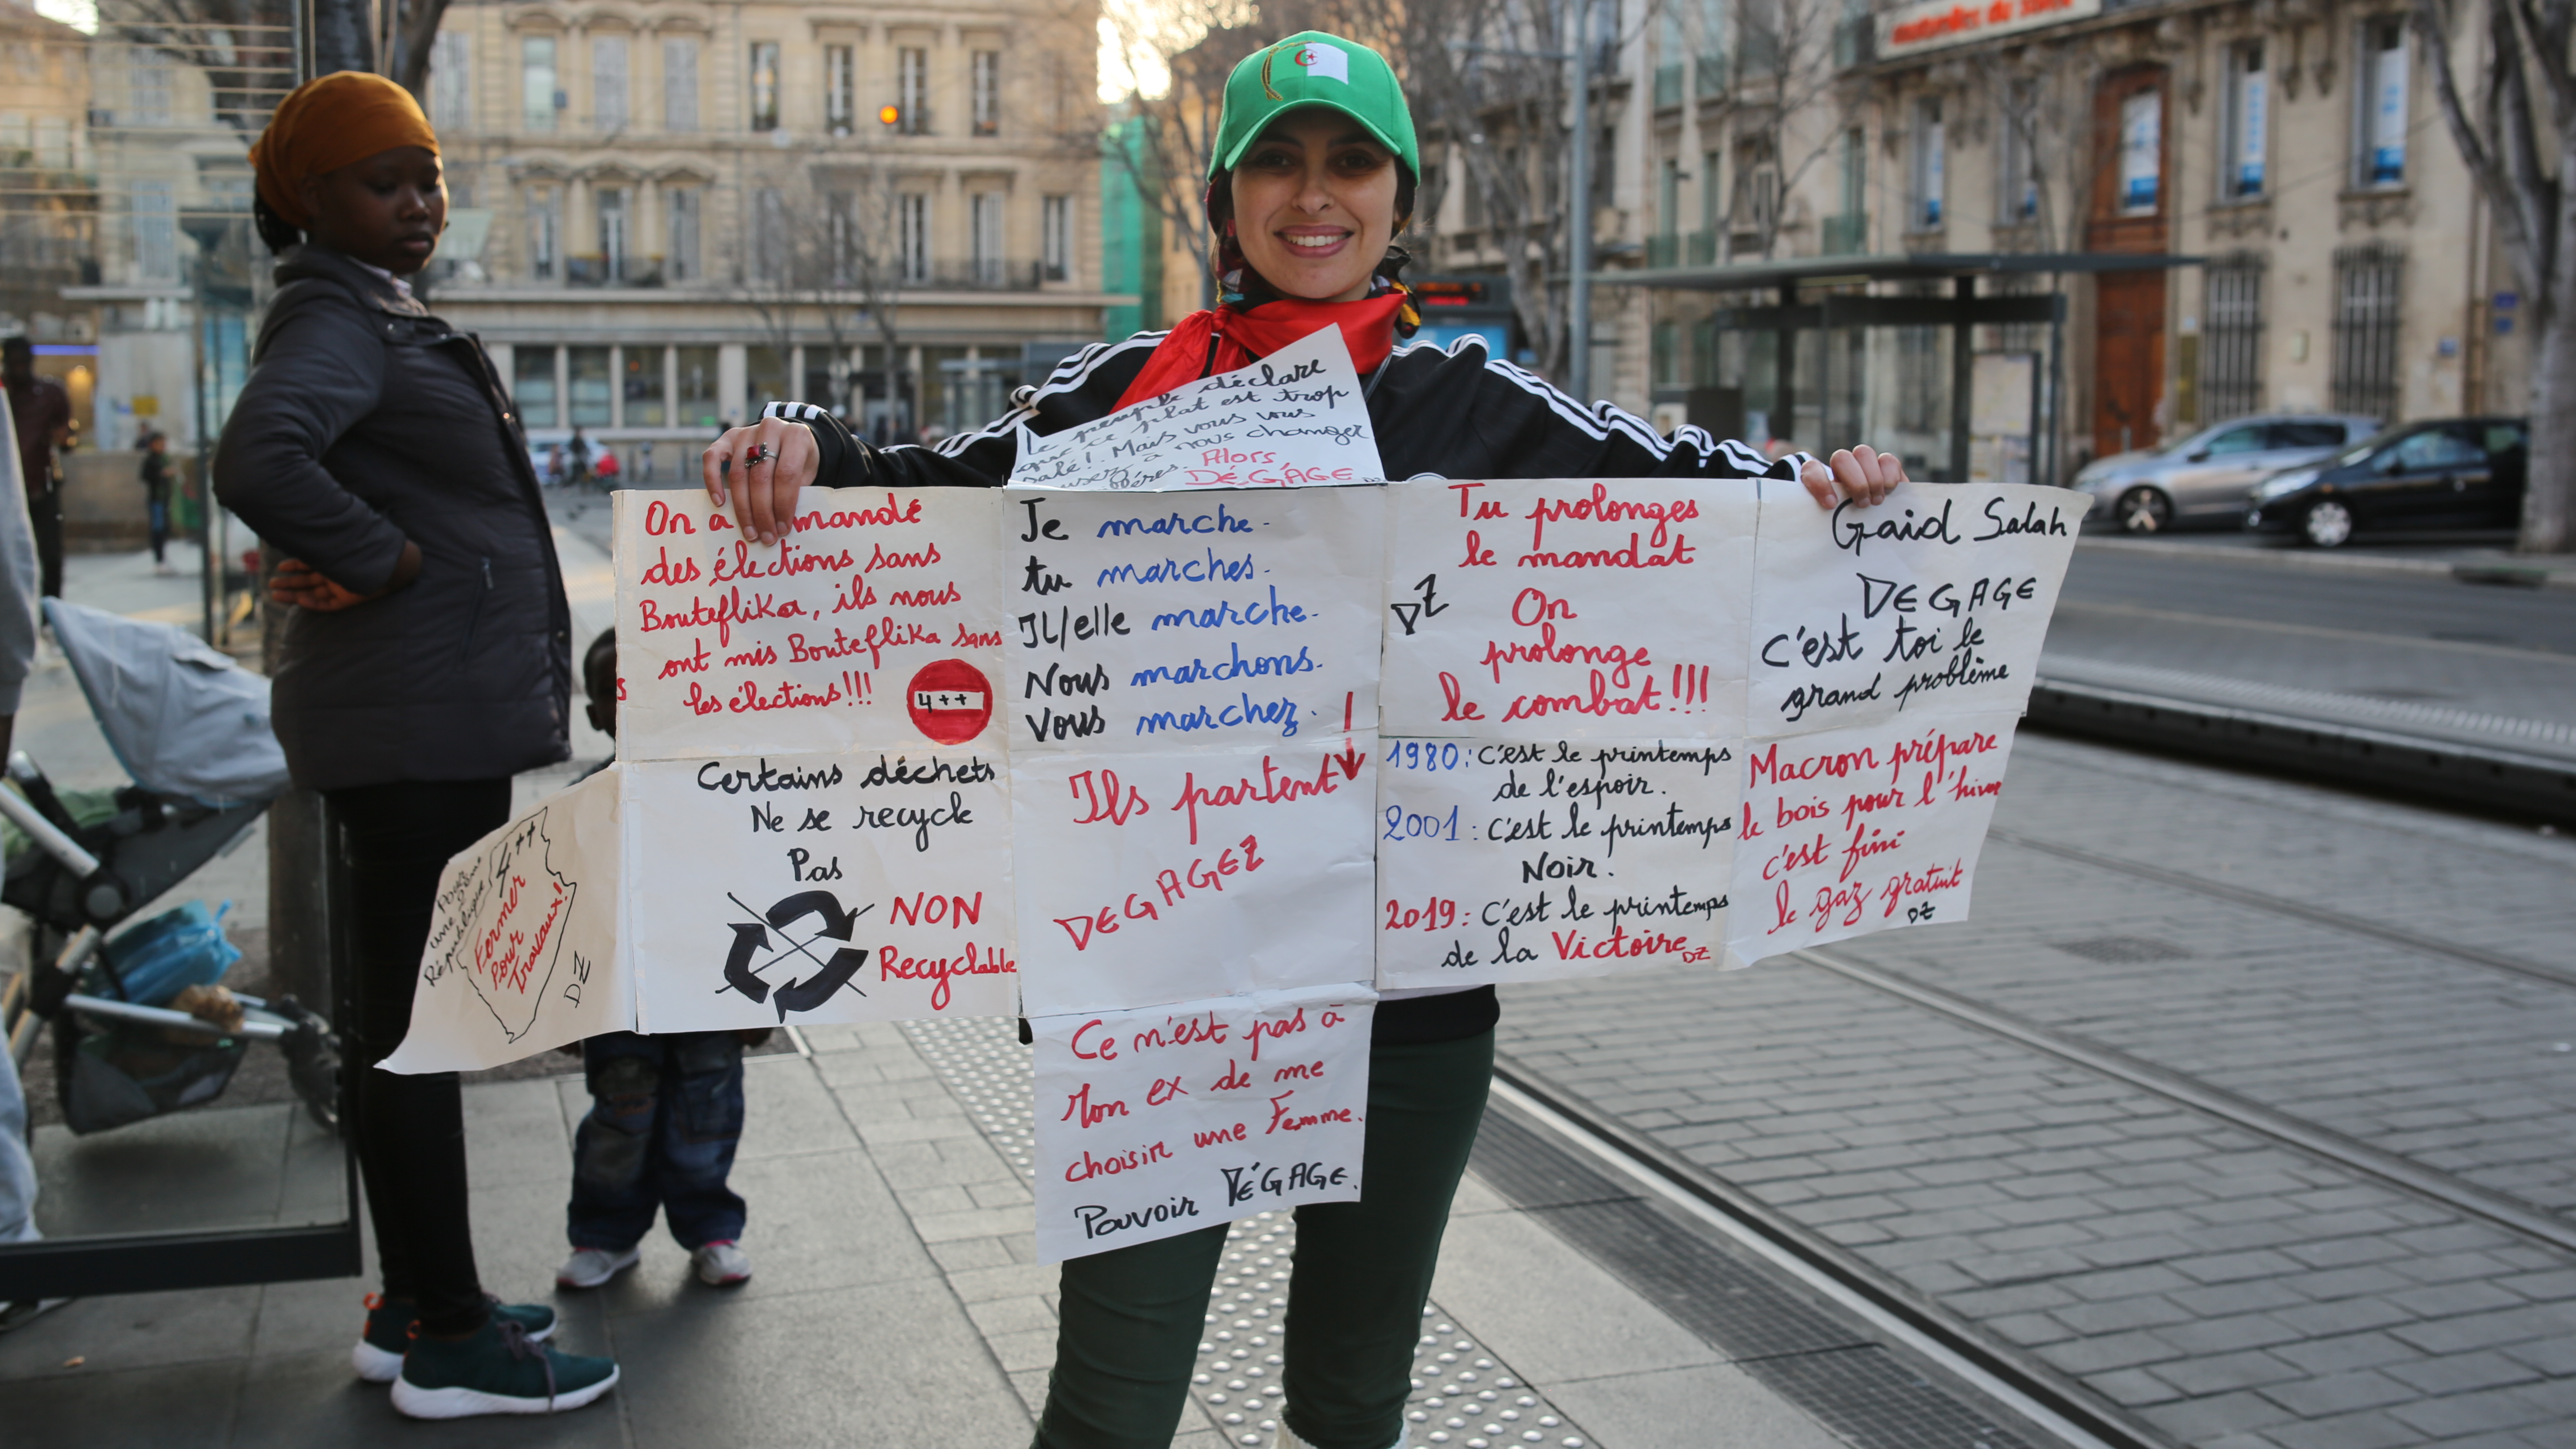 déclare
Le peuple
que ce plat est trop
salé! Mais vous vous
usez à nous changer
Alors
DÉGAGE
On a mandé
des élections sans
Bouteflika, ils nous
ont mis Bouteflika sans
les élections!!!
4++
Je marche.
tu marches.
Il/elle marche.
Nous marchons.
Vous marchez.
Ils partent
DEGAGEZ
Tu prolonges
le mandat
DZ
On
prolonge
le combat!!!
Gaid Salah
DEGAGE
C'est toi le
grand problème
Pour
une 2ème
République
4++
Fermer
Pour
Travaux!
DZ
Certains déchets
Ne se recycle
Pas
NON
Recyclable
1980: C'est le printemps
de l'espoir.
2001: C'est le printemps
Noir.
2019: C'est le printemps
de la Victoire
DZ
Macron prépare
le bois pour l'hiver
c'est fini
le gaz gratuit
DZ
Ce n'est pas à
Mon ex de me
choisir une Femme.
Pouvoir DÉGAGE.